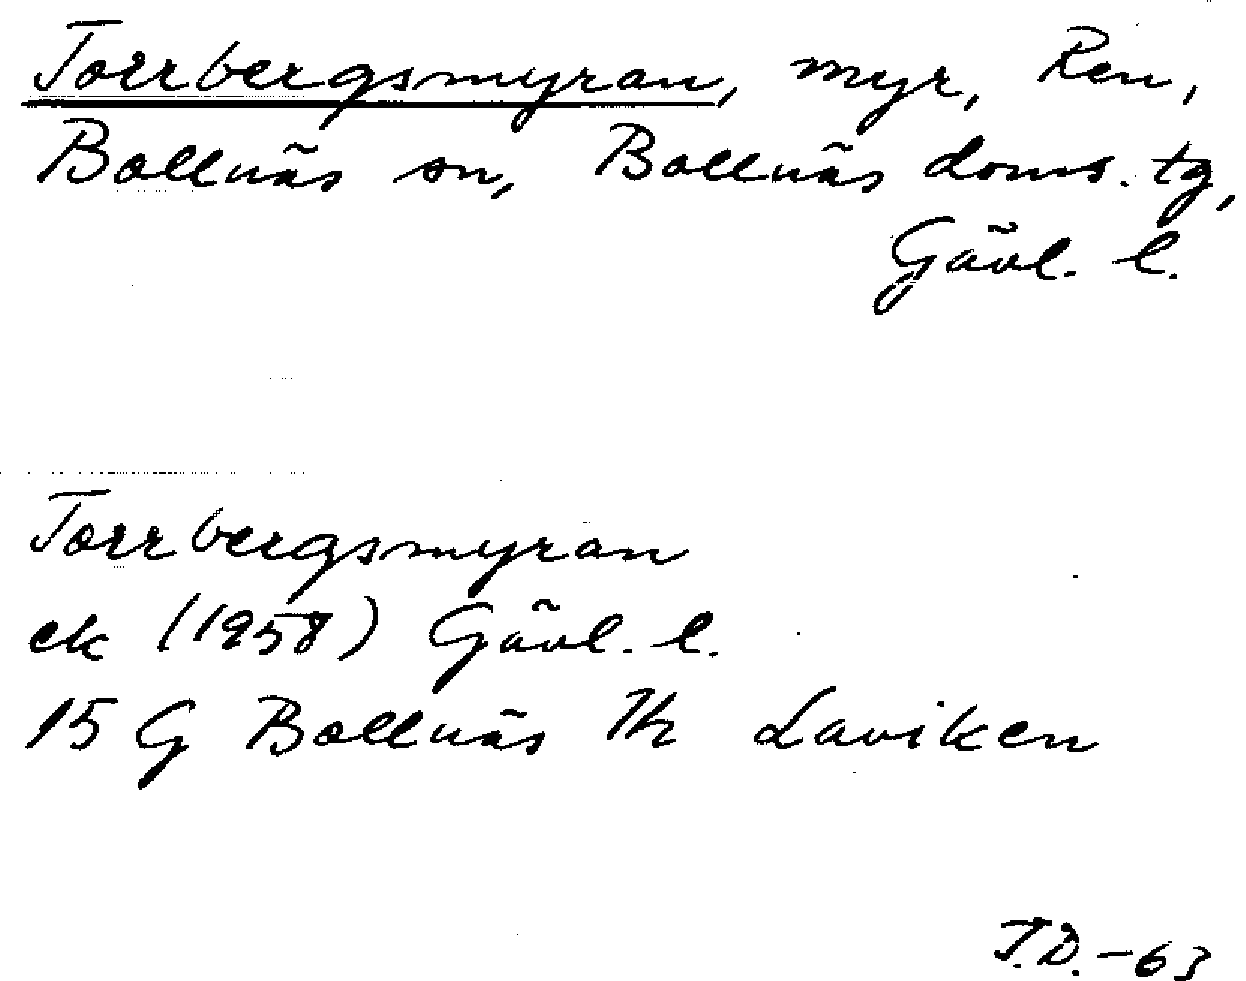 Torrbergsmyran, myr, Ren,
Bollnäs sn, Bollnäs doms. tg,
Gävl. l.
Torrbergsmyran
ek (1958) Gävl. l.
15 G Bollnäs 7h Laviken
T.D.-63